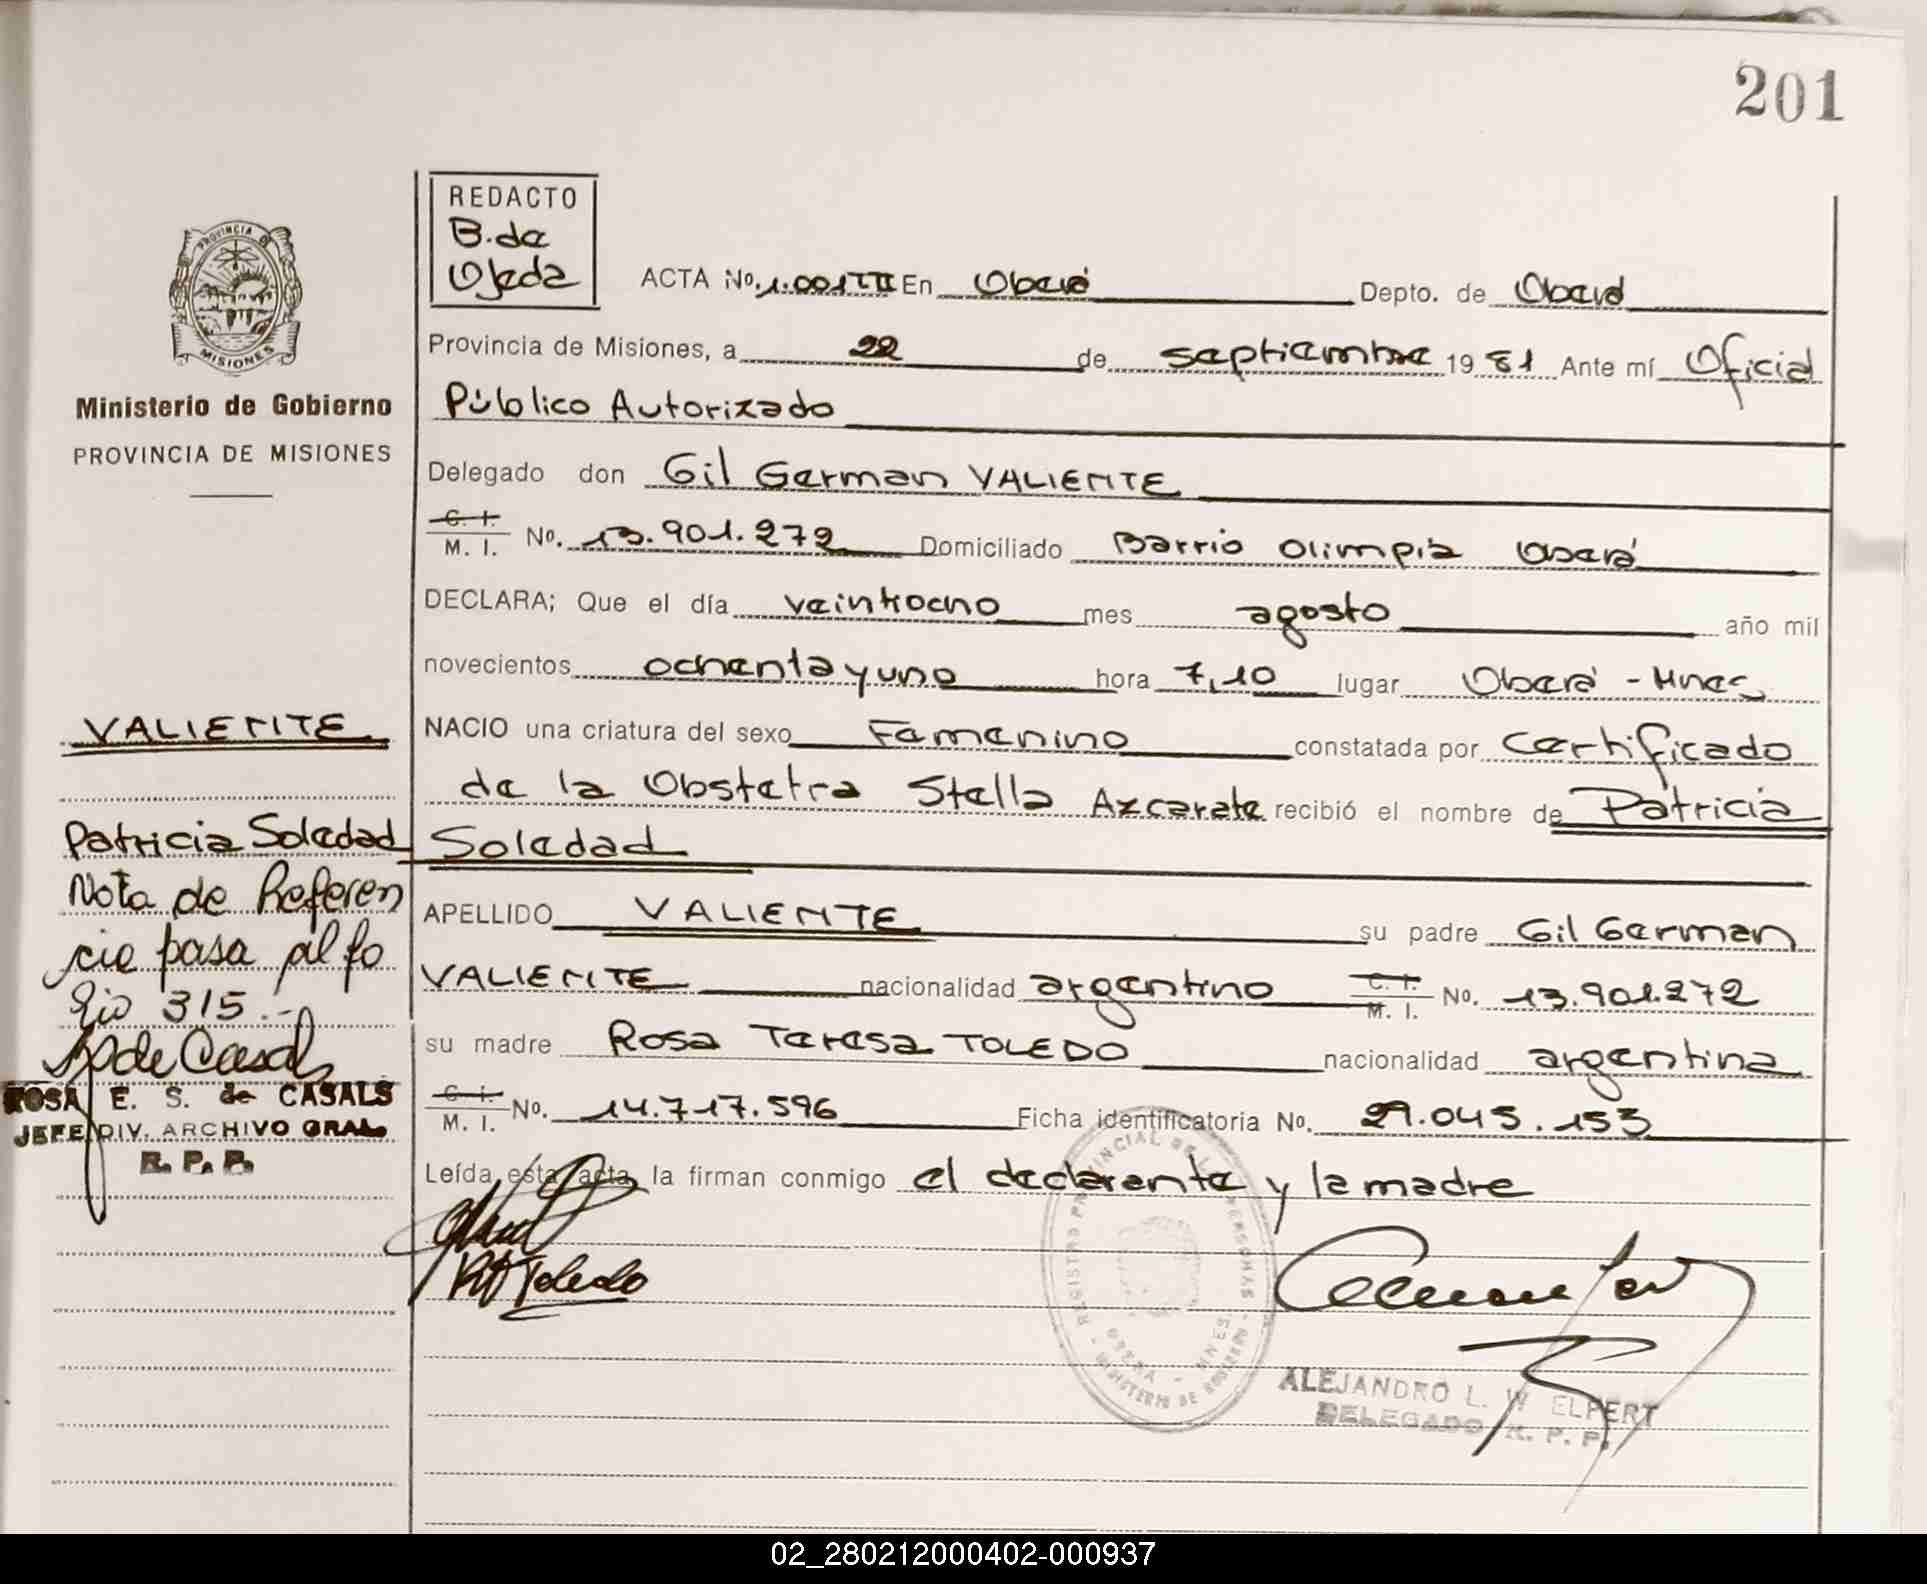 201
REDACTO
B. de
Ojeda
PROVINCIA DE
MISIONES
Ministerio de Gobierno
PROVINCIA DE MISIONES
ACTA No. 1.001 TII En Oberá Depto. de Oberá
Provincia de Misiones, a 22 de septiembre 19 81 Ante mí Oficial
Público Autorizado
Delegado don Gil German VALIENTE
C. I.
M. I. No. 13.901.272 Domiciliado Barrio Olimpia Oberá
DECLARA; Que el día veintiocho mes agosto año mil
novecientos ochenta y uno hora 7,10 lugar Oberá - Mnes
NACIO una criatura del sexo Femenino constatada por certificado
de la Obstetra Stella Azcarate recibió el nombre de Patricia
Soledad
APELLIDO VALIENTE su padre Gil German
VALIENTE nacionalidad argentino C. I. M. I. No. 13.901.272
su madre Rosa Teresa TOLEDO nacionalidad argentina
C. I.
M. I. No. 14.717.596 Ficha identificatoria No. 29.045.153
Leída esta acta, la firman conmigo el declarante y la madre
RT Toledo
REGISTRO PROVINCIAL DE LAS PERSONAS
OBERA - MNES
MINISTERIO DE GOBIERNO
ALEJANDRO L. W ELPERT
DELEGADO R. P. P.
VALIENTE
Patricia Soledad
Nota de Referen
cia pasa al fo
lio 315.-
de Casals
ROSA E. S. de CASALS
JEFE DIV. ARCHIVO GRAL.
R. P. P.
02_280212000402-000937